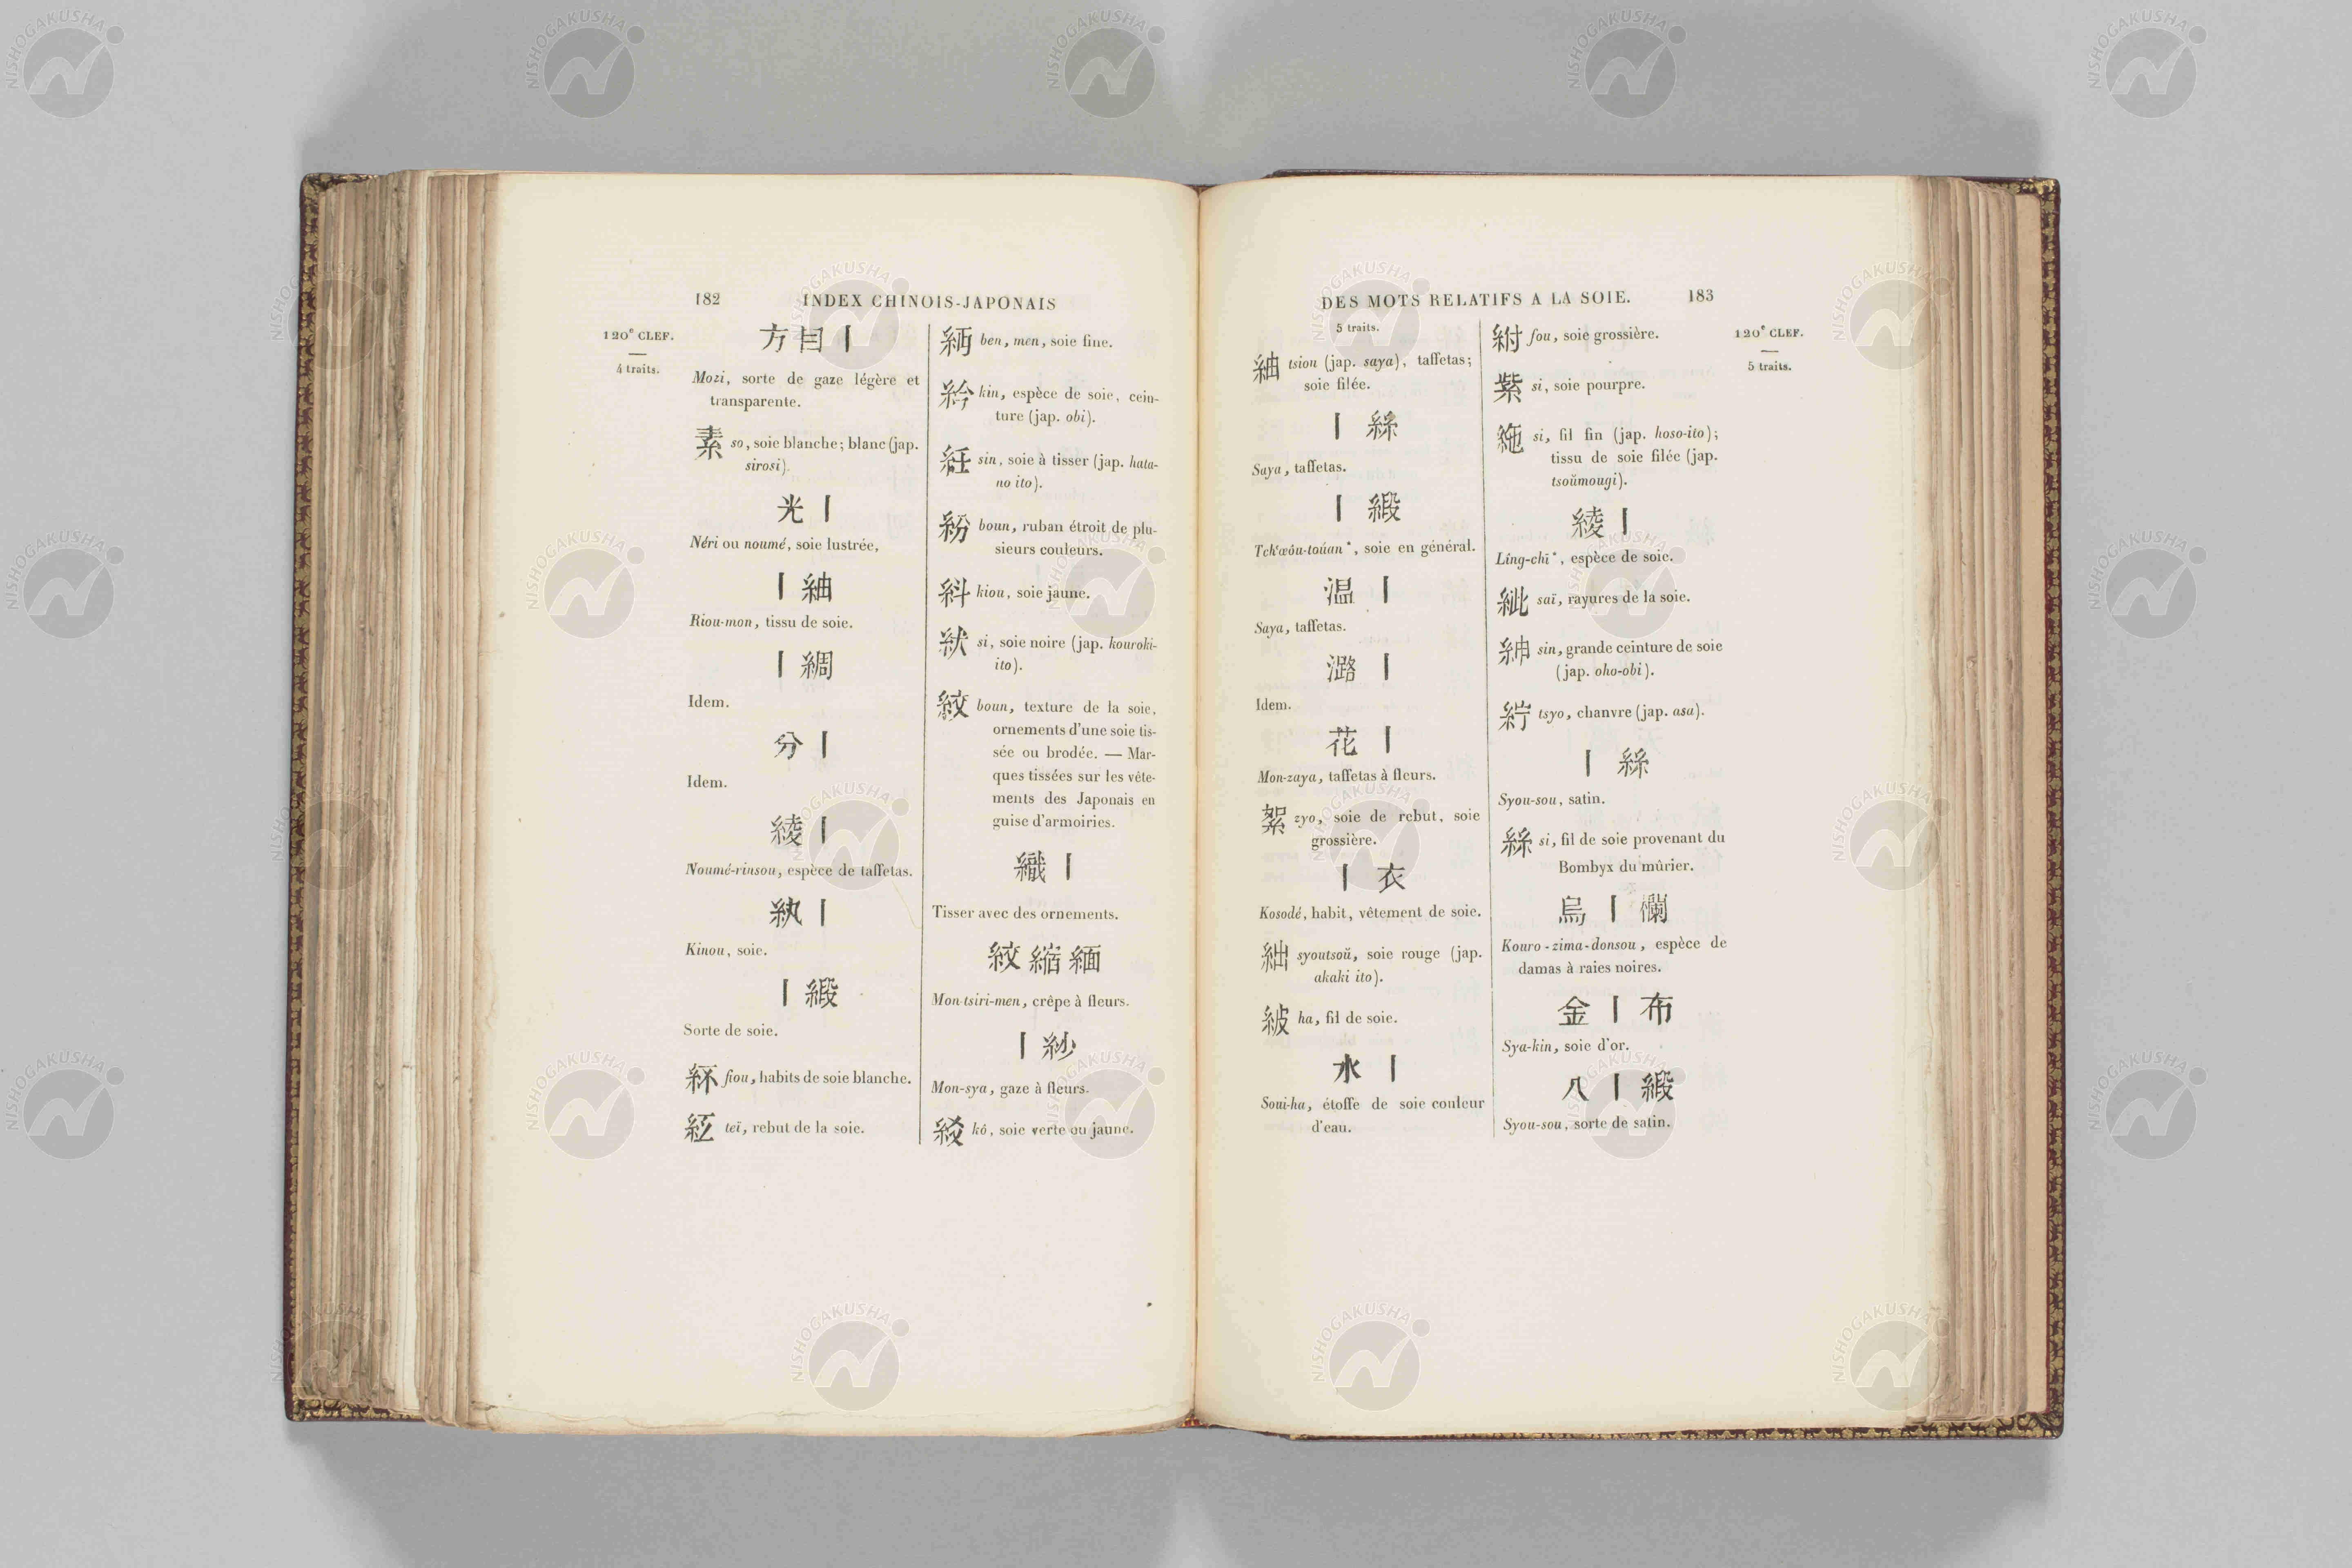 182 INDEX CHINOIS-JAPONAIS
120e CLEF.
4 traits.
方目丨
Mozi, sorte de gaze légère et
transparente.
素 so, soie blanche; blanc (jap.
sirosi).
光丨
Néri ou noumé, soie lustrée,
丨紬
Riou-mon, tissu de soie.
丨綢
Idem.
分丨
Idem.
綾丨
Noumé-rinsou, espèce de taffetas.
紈丨
Kinou, soie.
丨緞
Sorte de soie.
紑 fiou, habits de soie blanche.
teï, rebut de la soie.
ben, men, soie fine.
紟 kin, espèce de soie, cein-
ture (jap. obi).
紝 sin, soie à tisser (jap. hata-
no ito).
紛 boun, ruban étroit de plu-
sieurs couleurs.
kiou, soie jaune.
si, soie noire (jap. kouroki-
ito).
紋 boun, texture de la soie,
ornements d'une soie tis-
sée ou brodée. — Mar-
ques tissées sur les vête-
ments des Japonais en
guise d'armoiries.
織丨
Tisser avec des ornements.
紋縮緬
Mon-tsiri-men, crêpe à fleurs.
丨紗
Mon-sya, gaze à fleurs.
絞 kô, soie verte ou jaune.
DES MOTS RELATIFS A LA SOIE. 183
120e CLEF.
5 traits.
5 traits.
紬 tsiou (jap. saya), taffetas;
soie filée.
丨絲
Saya, taffetas.
丨緞
Tch'œôu-toúan*, soie en général.
温丨
Saya, taffetas.
潞丨
Idem.
花丨
Mon-zaya, taffetas à fleurs.
絮 zyo, soie de rebut, soie
grossière.
丨衣
Kosodé, habit, vêtement de soie.
絀 syoutsoŭ, soie rouge (jap.
akaki ito).
紴 ha, fil de soie.
水丨
Soui-ha, étoffe de soie couleur
d'eau.
紨 fou, soie grossière.
紫 si, soie pourpre.
絁 si, fil fin (jap. hoso-ito);
tissu de soie filée (jap.
tsoŭmougi).
綾丨
Lîng-chī*, espèce de soie.
紪 saï, rayures de la soie.
紳 sin, grande ceinture de soie
(jap. oho-obi).
紵 tsyo, chanvre (jap. asa).
丨絲
Syou-sou, satin.
絲 si, fil de soie provenant du
Bombyx du mûrier.
烏丨襴
Kouro-zima-donsou, espèce de
damas à raies noires.
金丨布
Sya-kin, soie d'or.
八丨緞
Syou-sou, sorte de satin.